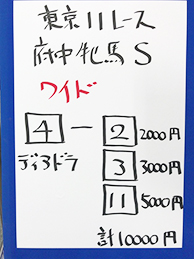 東京11レース
府中牝馬S
ワイド
4 － 2 2000円
ディアドラ 3 3000円
11 5000円
計10000円